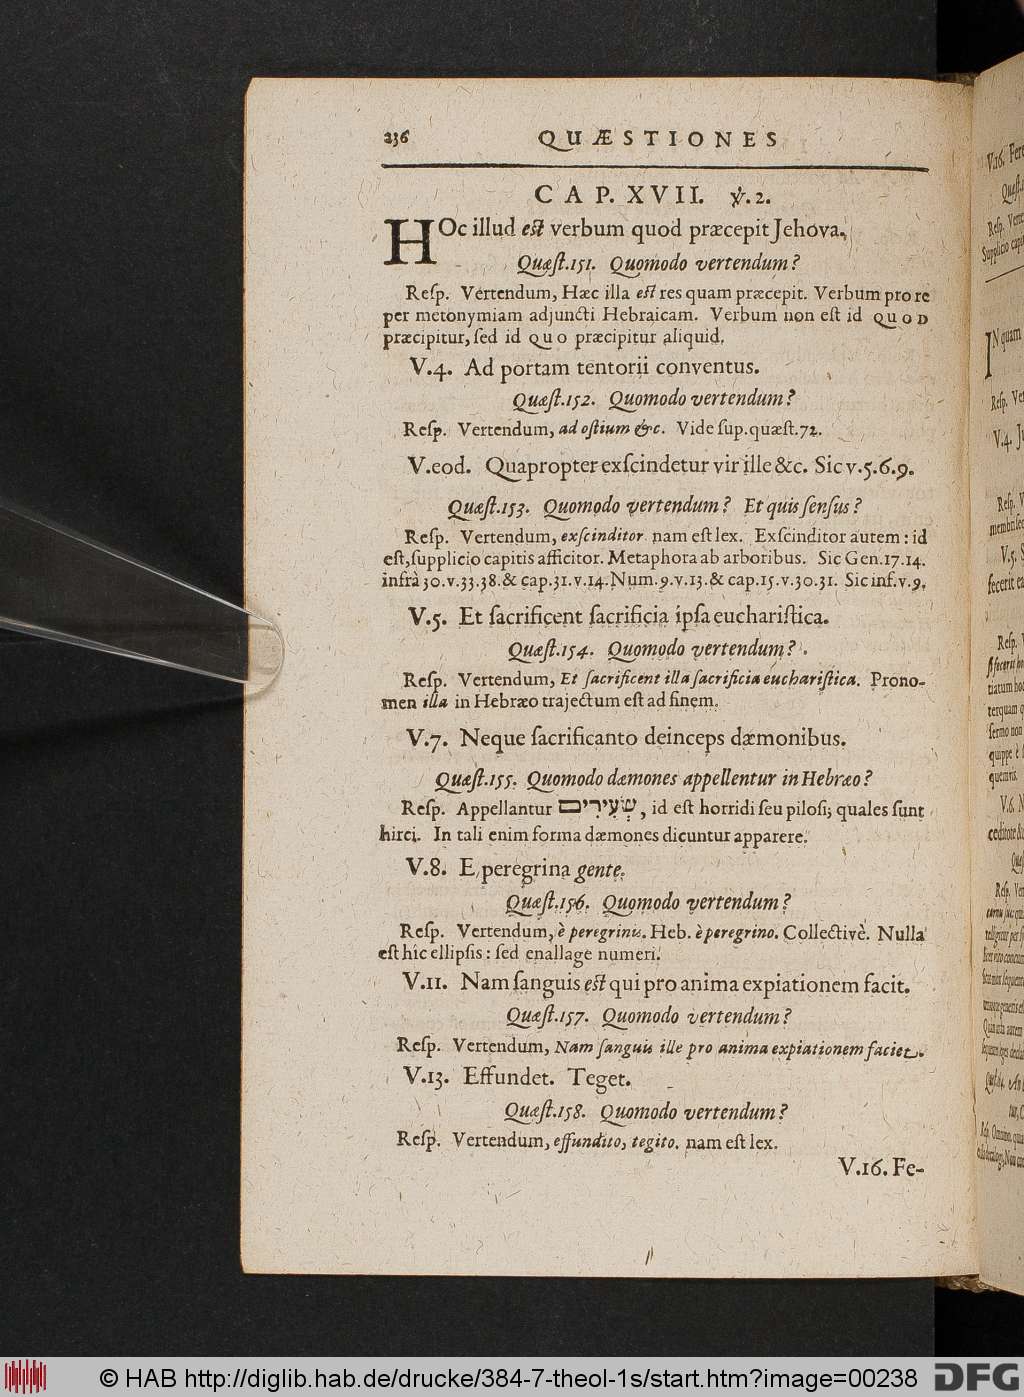 236 QUÆSTIONES
CAP. XVII. ℣.2.
HOc illud est verbum quod præcepit Jehova.
Quæst.151. Quomodo vertendum?
Resp. Vertendum, Hæc illa est res quam præcepit. Verbum pro re
per metonymiam adjuncti Hebraicam. Verbum non est id QUOD
præcipitur, sed id QUO præcipitur aliquid.
V.4. Ad portam tentorii conventus.
Quæst.152. Quomodo vertendum?
Resp. Vertendum, ad ostium &c. Vide sup.quæst.72.
V.eod. Quapropter exscindetur vir ille &c. Sic v.5.6.9.
Quæst.153. Quomodo vertendum? Et quis sensus?
Resp. Vertendum, exscinditor. nam est lex. Exscinditor autem: id
est, supplicio capitis afficitor. Metaphora ab arboribus. Sic Gen.17.14.
infrà 30.v.33.38.& cap.31.v.14.Num.9.v.13.& cap.15.v.30.31. Sic inf.v.9.
V.5. Et sacrificent sacrificia ipsa eucharistica.
Quæst.154. Quomodo vertendum?
Resp. Vertendum, Et sacrificent illa sacrificia eucharistica. Prono-
men illa in Hebræo trajectum est ad finem.
V.7. Neque sacrificanto deinceps dæmonibus.
Quæst.155. Quomodo dæmones appellentur in Hebræo?
Resp. Appellantur שְׂעִירִים, id est horridi seu pilosi; quales sunt
hirci. In tali enim forma dæmones dicuntur apparere.
V.8. E peregrina gente.
Quæst.156. Quomodo vertendum?
Resp. Vertendum, è peregrinis. Heb. è peregrino. Collectivè. Nulla
est hîc ellipsis: sed enallage numeri.
V.11. Nam sanguis est qui pro anima expiationem facit.
Quæst.157. Quomodo vertendum?
Resp. Vertendum, Nam sanguis ille pro anima expiationem faciet.
V.13. Effundet. Teget.
Quæst.158. Quomodo vertendum?
Resp. Vertendum, effundito, tegito. nam est lex.
V.16. Fe-
© HAB http://diglib.hab.de/drucke/384-7-theol-1s/start.htm?image=00238
DFG